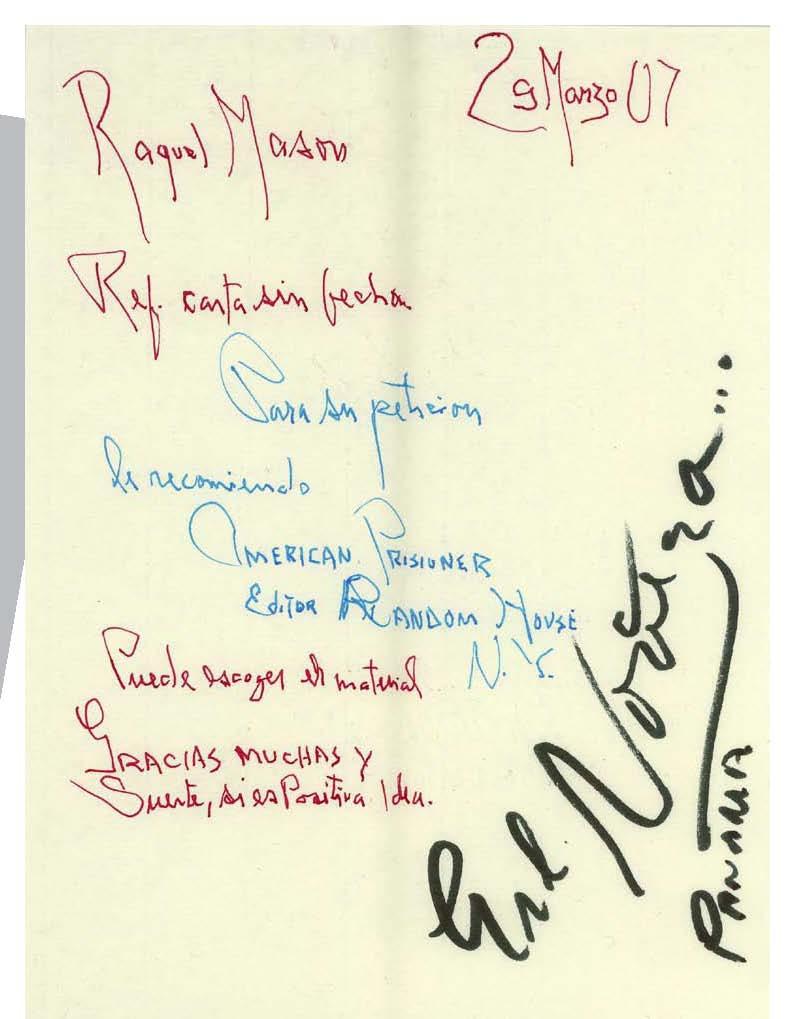 29 Marzo 07
Raquel Mason
Ref. carta sin fecha
Para su peticion
le recomiendo
AMERICAN PRISIONER
EDITOR RANDOM HOUSE
N.Y.
Puede escoger el material
GRACIAS MUCHAS Y
Suerte, si es Positiva Idea.
Gral Noriega...
PANAMA